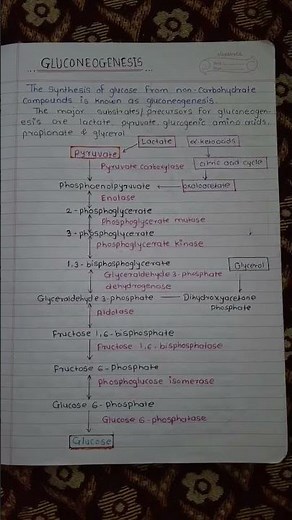 GLUCONEOGENESIS
The synthesis of glucose from non-carbohydrate
compounds is known as gluconeogenesis.
The major substrates/precursors for gluconeogen-
esis are lactate, pyruvate, glucogenic amino acids,
propionate & glycerol.
Lactate
Pyruvate
Pyruvate carboxylase
citric acid cycle
Phosphoenolpyruvate
oxaloacetate
Enolase
2-phosphoglycerate
Phosphoglycerate mutase
3-phosphoglycerate
phosphoglycerate kinase
1,3-bisphosphoglycerate
Glycerol
Glyceraldehyde 3-phosphate
dehydrogenase
Glyceraldehyde 3-phosphate
Dihydroxyacetone
phosphate
Aldolase
Fructose 1,6-bisphosphate
Fructose 1,6-bisphosphatase
Fructose 6-phosphate
phosphoglucose isomerase
Glucose 6-phosphate
Glucose 6-phosphatase
Glucose